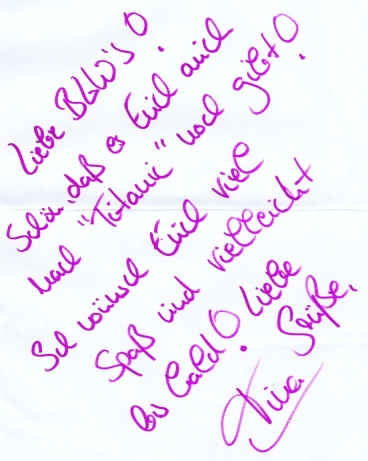 Liebe BLW'S!
Schön, daß es Euch auch
nach "Titanic" noch gibt!
Ich wünsch Euch viel
Spaß und vielleicht
bis bald! Liebe
Grüße,
Nina